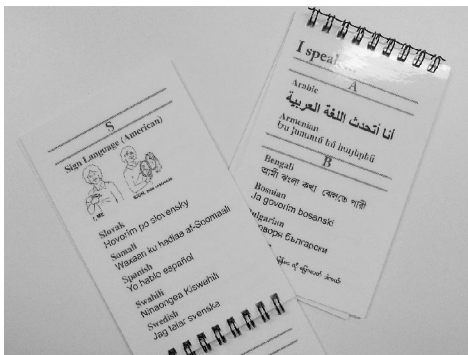 S
Sign Language (American)
Slovak
Hovorim po slovensky
Somali
Waxaan ku hadlaa af-Soomaali
Spanish
Yo hablo español
Swahili
Ninaongea Kiswahili
Swedish
Jag talar svenska
I speak
A
Arabic
أنا أتحدث اللغة العربية
Armenian
Ես խոսում եմ հայերեն
B
Bengali
আমী বাংলা কথা
Bosnian
Ja govorim bosanski
Bulgarian
български